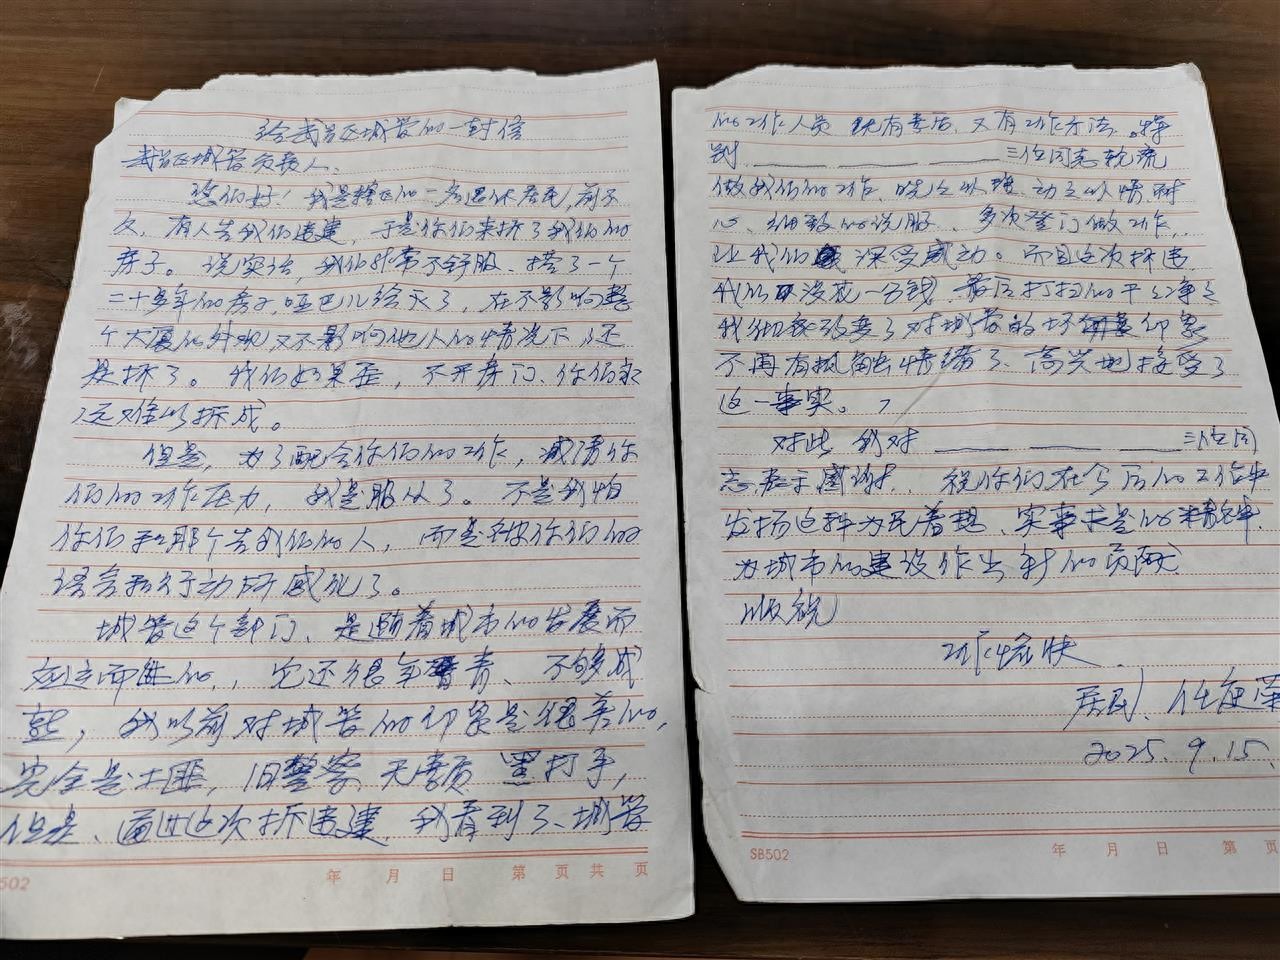 给武昌区城管的一封信
武昌区城管负责人、
您们好！我是辖区的一名退休居民，前不
久，有人告我们违建，于是你们来拆了我们的
房子。说实话，我们非常不舒服、搭了一个
二十多年的房子，哑巴儿给灭了，在不影响整
个大厦的外观，又不影响他人的情况下，还
是拆了。我们如果歪，不开房门、你们永
远难以拆成。
但是，为了配合你们的工作，减清你
们的工作压力，我是服从了。不是我怕
你们和那个告我们的人，而是被你们的
语言和行动所感化了。
城管这个部门、是随着城市的发展而
应运而生的，它还很年青、不够成
熟，我以前对城管的印象是很差的，
完全是土匪，旧警察，无素质 黑打手，
但是、通过这次拆违建，我看到了、城管
的工作人员 既有素质、又有工作方法。特
别 三位同志轮流
做我们的工作、晓之以理、动之以情耐
心、细致的说服、多次登门做工作、
让我们 深受感动。而且这次拆违
我们又没花一分钱，最后打扫的干干净净
我彻底改变了对城管的坏印象
不再有抵触情绪了、高兴地接受了
这一事实。
对此 我对 三位同
志表示感谢，祝你们在今后的工作中
发扬这种为民着想、实事求是的精神、
为城市的建设作出新的贡献
顺祝
工作愉快
居民、任庭荣
2025.9.15.
502 年 月 日 第 页 共 页
SB502 年 月 日 第 页